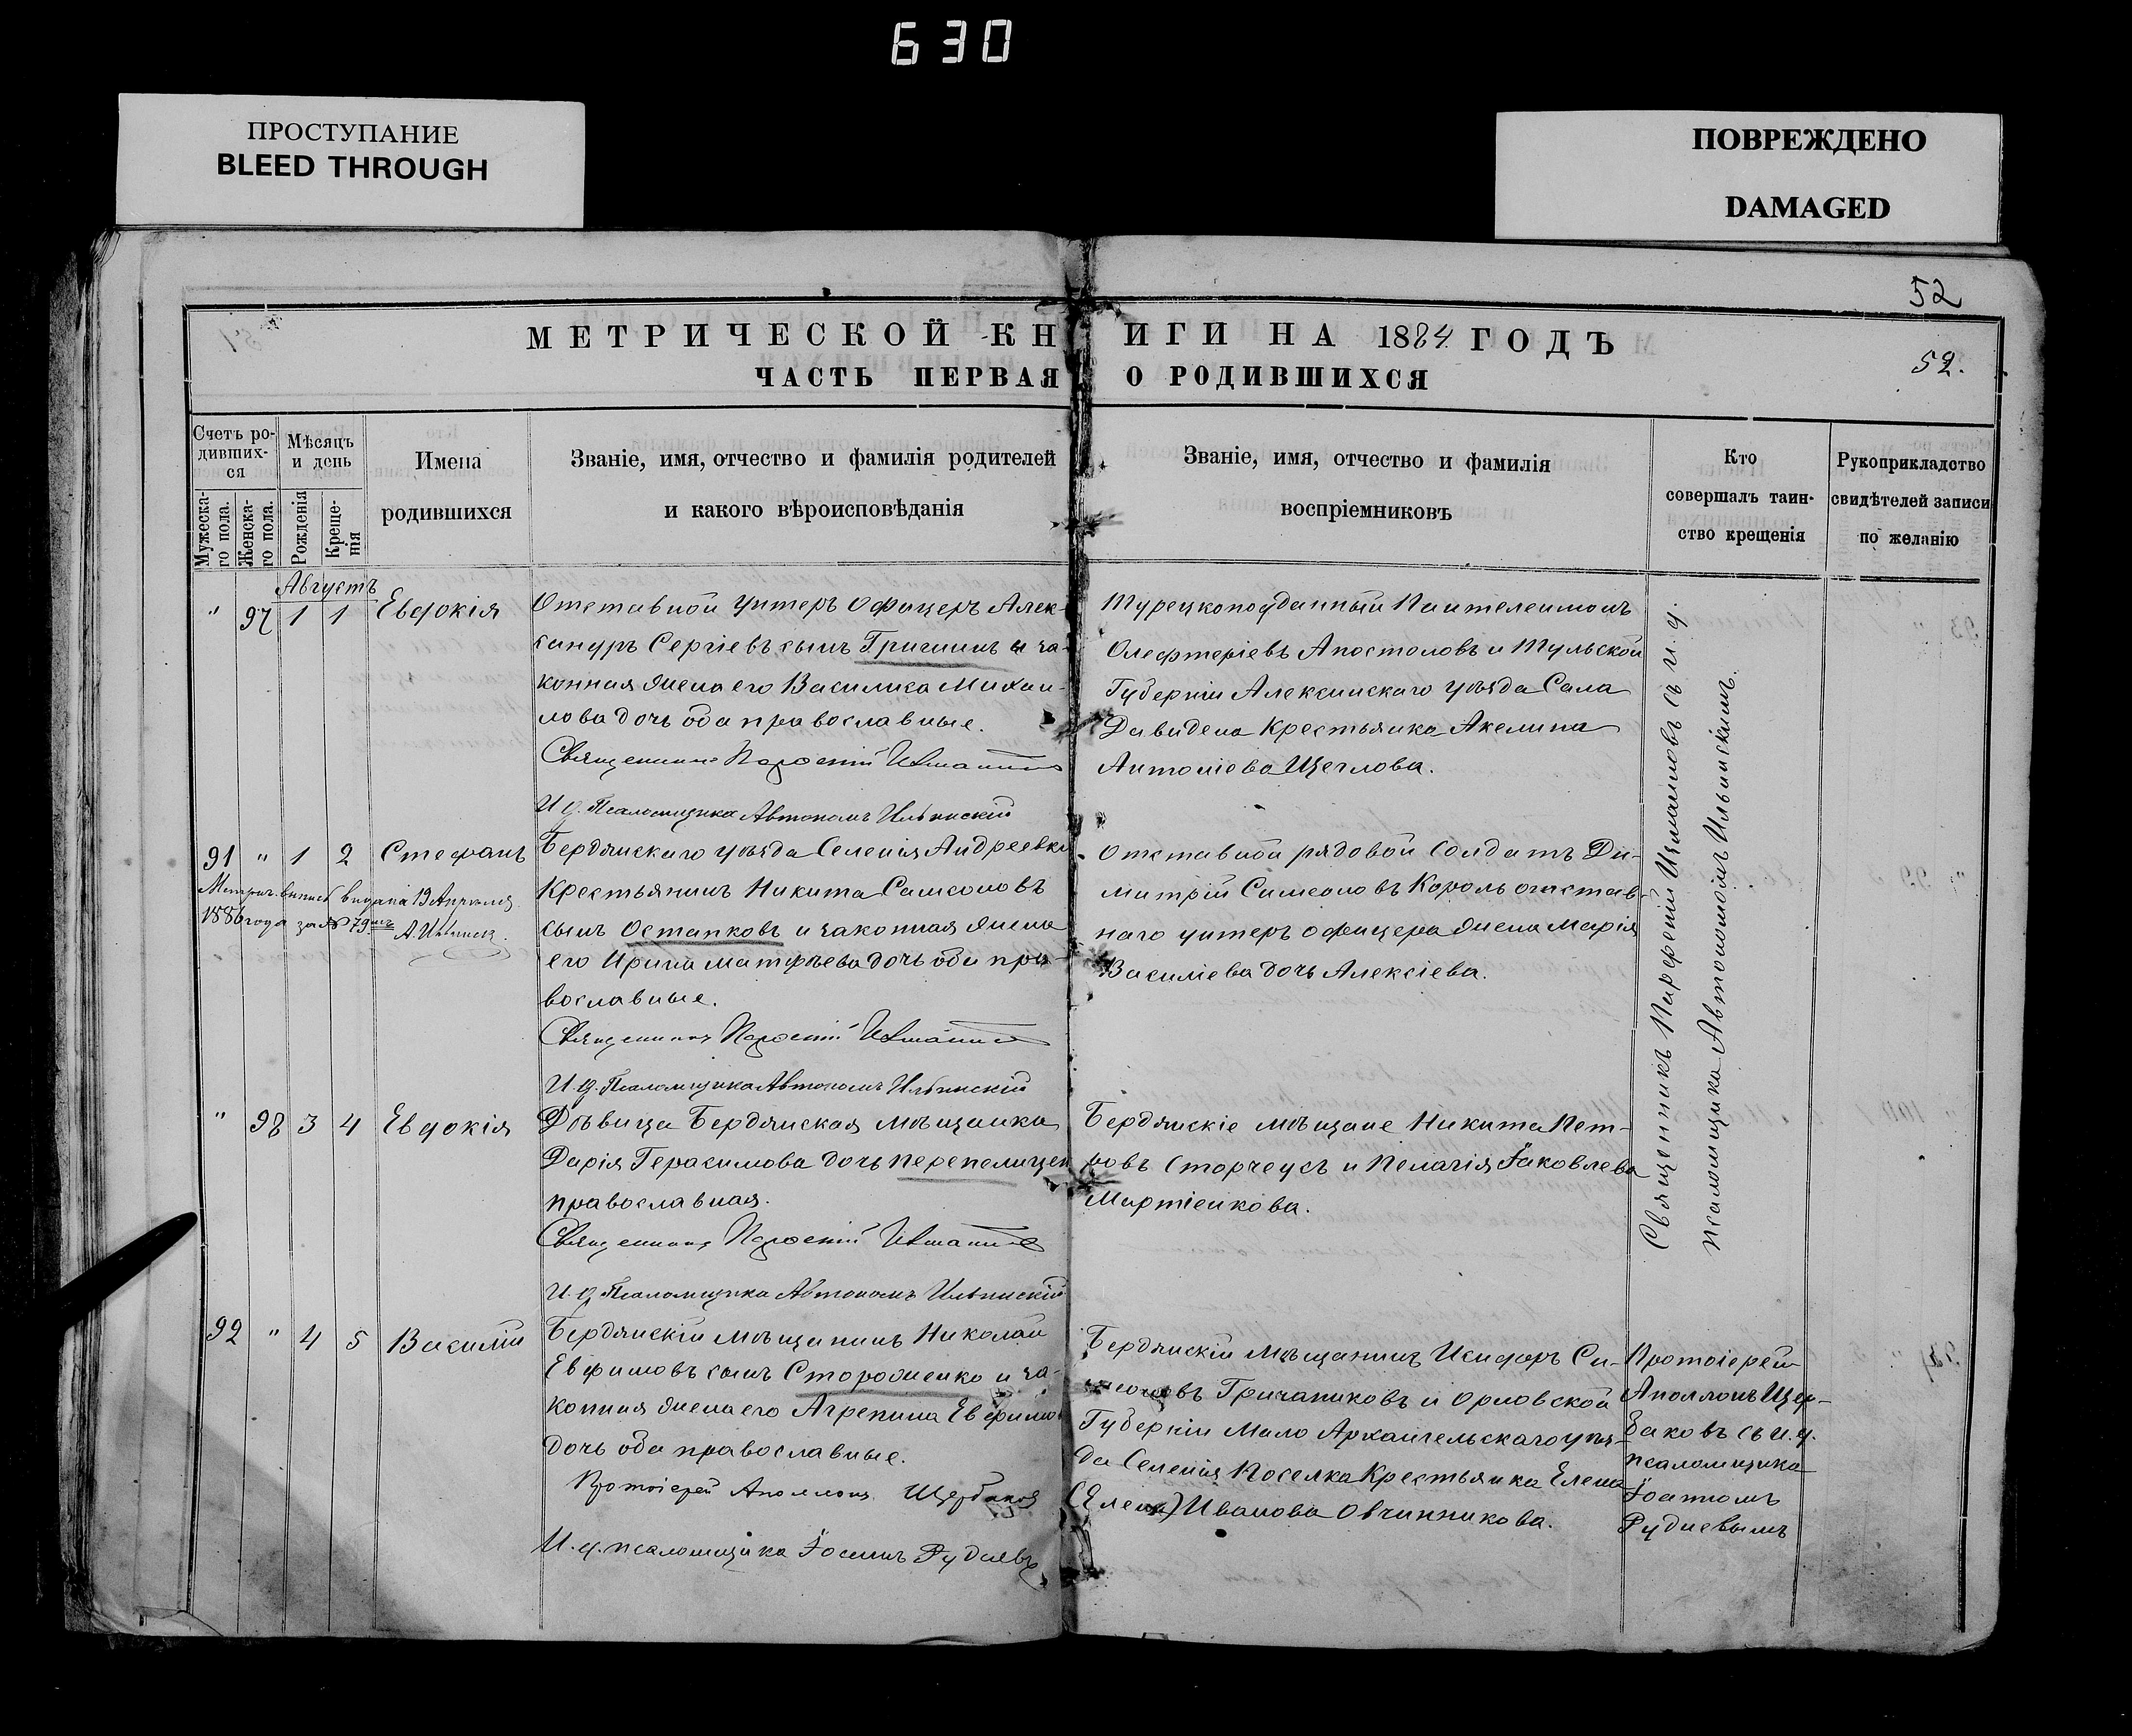 630
ПРОСТУПАНИЕ
BLEED THROUGH
ПОВРЕЖДЕНО
DAMAGED
52
МЕТРИЧЕСКОЙ КН ИГИ НА 1884 ГОДЪ
52.
ЧАСТЬ ПЕРВАЯ О РОДИВШИХСЯ
Счетъ ро-
дивших-
ся
Мужеска-
го пола.
Женска-
го пола.
Мѣсяцъ
и день
Рожденія
Креще-
нія
Имена
родившихся
Званіе, имя, отчество и фамилія родителей
и какого вѣроисповѣданія
Званіе, имя, отчество и фамилія
воспріемниковъ
Кто
совершалъ таин-
ство крещенія
Рукоприкладство
свидѣтелей записи
по желанію
Августъ
" 97 1 1 Евдокія
Отставной унтеръ офицеръ Алек-
сандръ Сергіевъ сынъ Гришинъ и за-
конная жена его Василиса Михаи-
лова дочь оба православные.
Священникъ Парфеній
И. д. Псаломщика Автономъ Ильинскій
Турецкоподданный Пантелеимонъ
Олефтеріевъ Апостоловъ и Тульской
Губерніи Алексинскаго уѣзда Села
Давидена Крестьянка Акелина
Антоніева Щеглова.
91 " 1 2 Стефанъ
Метрич. выпись выдана 19 Апрѣля
1886 года за № 79
Бердянскаго уѣзда Селенія Андреевки
Крестьянинъ Никита Самсоновъ
сынъ Остапковъ и законная жена
его Ирина Матфѣева дочь оба пра-
вославные.
Священникъ Парфеній
И. д. Псаломщика Автономъ Ильинскій
Отставной рядовой Солдатъ Ди-
митрій Симеоновъ Король отстав-
наго унтеръ офицера жена Марія
Василіева дочь Алексіева.
" 98 3 4 Евдокія
Дѣвица Бердянская мѣщанка
Дарія Герасимова дочь Перепелицен
православная.
Священникъ Парфеній
И. д. Псаломщика Автономъ Ильинскій
Бердянскіе мѣщане Никита Пет-
ровъ Сторчеусъ и Пелагія Іаковлева
Мартіенкова.
Священникъ Парфеній съ и. д.
псаломщика Автономомъ Ильинскимъ.
92 " 4 5 Василій
Бердянскій мѣщанинъ Николай
Евфимовъ сынъ Стороженко и за-
конная жена его Агрепина Евфимов
дочь оба православные.
Протоіерей Аполлонъ Щербаковъ
И. д. псаломщика Іосифъ Рудневъ
Бердянскій Мѣщанинъ Исидоръ Си-
меоновъ Гричаниковъ и Орловской
Губерніи Мало Архангельскаго уѣз-
да Селенія Поселка Крестьянка Елена
(Елена) Иванова Овчинникова.
Протоіерей
Аполлонъ Щер-
баковъ съ и. д.
псаломщика
Рудневымъ